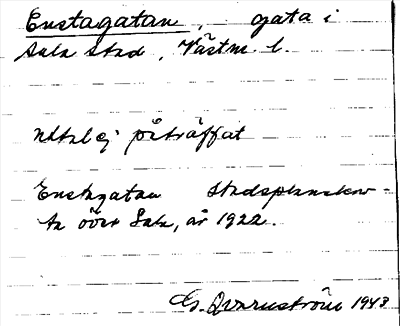 Enstagatan, gata i
Sala stad, Västm. l.
Uttal ej påträffat
Enstagatan Stadsplanekar-
ta över Sala, år 1922.
G. Qvarnström 1943